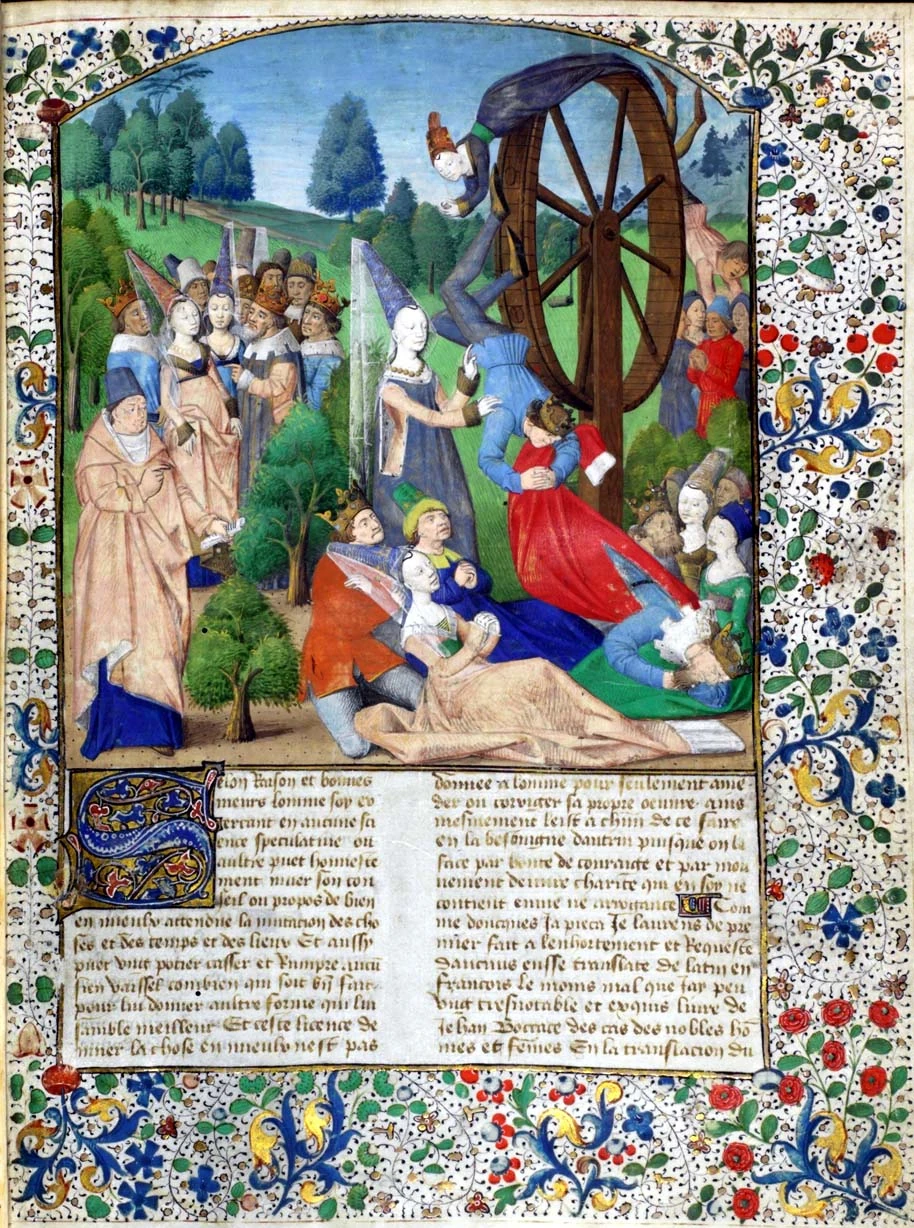 Selon Raison et bonnes
meurs lomme soy ex
ercant en aucune sci
ence speculative ou
aultre puet honneste
ment muer son con
seil ou propos de bien
en mieulx attendue la mutacion des cho
ses et des temps et des lieux Et aussy
puet ung potier casser et Rumpre aucũ
sien vaissel combien qui soit bñ fait
pour lui donner aultre forme qui lui
samble meilleur Et ceste licence de
muer la chose en mieulx nest pas
donnee a lomme pour seulement ame
der ou corriger sa propre oeuvre ains
mesmement leist a chũn de ce faire
en la besoingne daultrui puisque on le
face par bonte de couraige et par mou
vement de vraie charite qui en soy ne
contient envie ne arrogance Com
me doncques Ja pieca Je laurens de pre
mier fait a lenhortement et Requeste
daucuns eusse translate de latin en
francois le moins mal que jay peu
ung tresnotable et exquis livre de
Jehan Boccace des cas des nobles hõ
mes et fẽmes En la translacion du